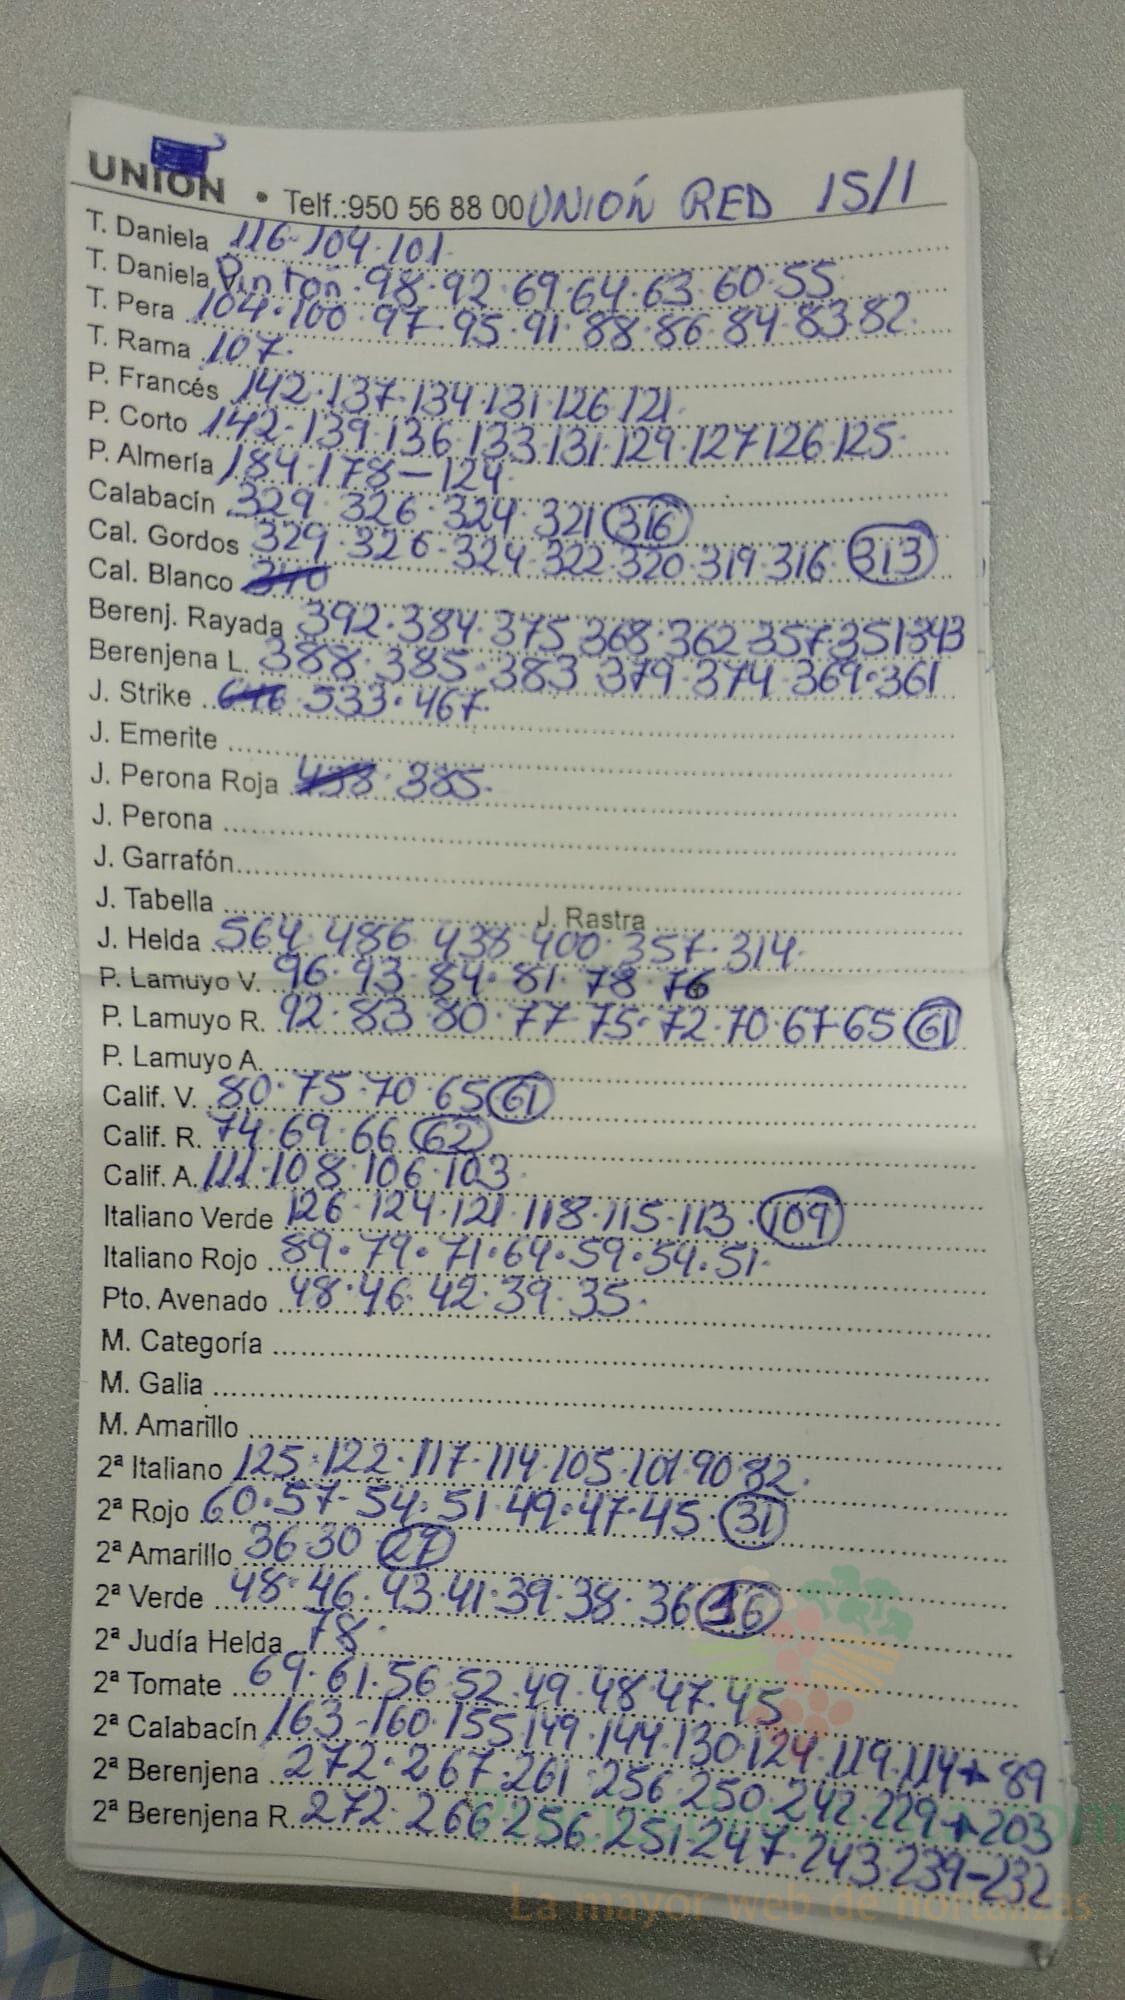 UNIÓN • Telf.:950 56 88 00 UNIÓN RED 15/1
T. Daniela 116-104-101
T. Daniela Pinton 98·92·69·64·63·60·55
T. Pera 104·100·97·95·91·88·86·84·83·82
T. Rama 107
P. Francés 142·137·134·131·126·121
P. Corto 142-139·136·133·131·129·127·126·125
P. Almería 184·178-124
Calabacín 329·326·324·321 316
Cal. Gordos 329·326·324·322·320·319·316 313
Cal. Blanco 340
Berenj. Rayada 392·384·375·368·362·357·351·343
Berenjena L. 388·385·383·379·374·369·361
J. Strike 533·467
J. Emerite
J. Perona Roja 438·385
J. Perona
J. Garrafón
J. Tabella J. Rastra
J. Helda 564·486·438·400·357·314
P. Lamuyo V. 96·93·84·81·78·76
P. Lamuyo R. 92·83·80·77·75·72·70·67·65 61
P. Lamuyo A.
Calif. V. 80·75·70·65 61
Calif. R. 74·69·66 62
Calif. A. 111·108·106·103
Italiano Verde 126·124·121·118·115·113· 109
Italiano Rojo 89·79·71·64·59·54·51
Pto. Avenado 48·46·42·39·35
M. Categoría
M. Galia
M. Amarillo
2ª Italiano 125·122·117·114·105·101·90·82
2ª Rojo 60·57·54·51·49·47·45 31
2ª Amarillo 36·30 27
2ª Verde 48·46·43·41·39·38·36
2ª Judía Helda 78
2ª Tomate 69·61·56·52·49·48·47·45
2ª Calabacín 163-160·155·149·144·130·124·119·114+89
2ª Berenjena 272·267·261·256·250·242·229+203
2ª Berenjena R. 272·266·256·251·247·243·239-232
La mayor web de hortalizas